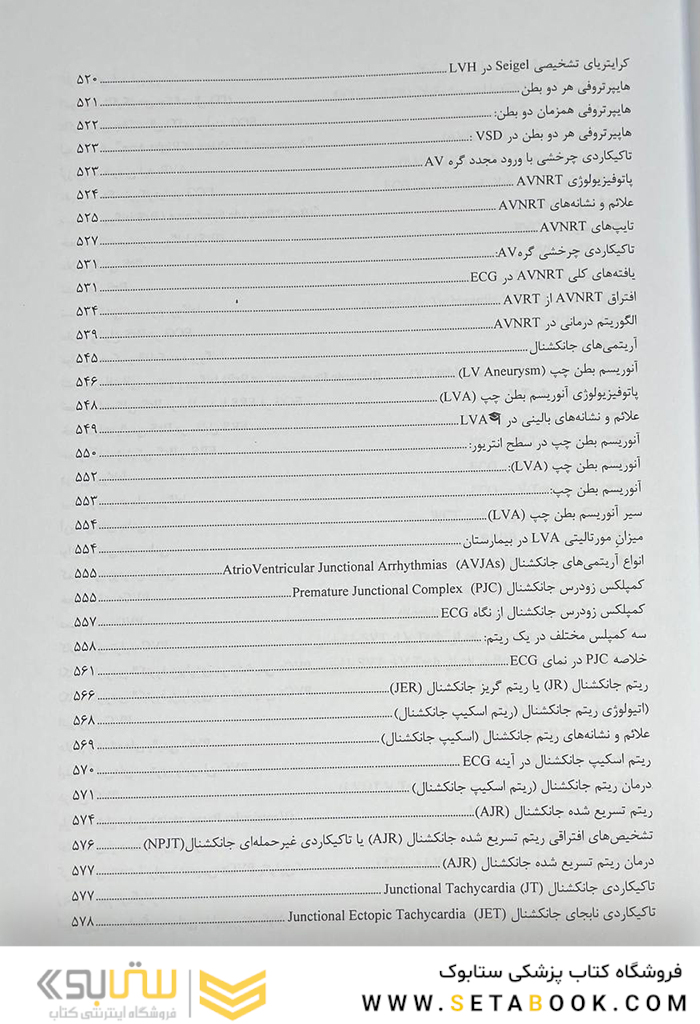 کرایتریای تشخیصی Seigel در LVH ........ ۵۲۰
هایپرتروفی هر دو بطن ........ ۵۲۱
هایپرتروفی همزمان دو بطن: ........ ۵۲۲
هاپیرتروفی هر دو بطن در VSD : ........ ۵۲۳
تاکیکاردی چرخشی با ورود مجدد گره AV ........ ۵۲۳
پاتوفیزیولوژی AVNRT ........ ۵۲۴
علائم و نشانه‌های AVNRT ........ ۵۲۵
تایپ‌های AVNRT ........ ۵۲۷
تاکیکاردی چرخشی گرهAV: ........ ۵۳۱
یافته‌های کلی AVNRT در ECG ........ ۵۳۱
افتراق AVNRT از AVRT ........ ۵۳۴
الگوریتم درمانی در AVNRT ........ ۵۳۹
آریتمی‌های جانکشنال ........ ۵۴۵
آنوریسم بطن چپ (LV Aneurysm) ........ ۵۴۶
پاتوفیزیولوژی آنوریسم بطن چپ (LVA) ........ ۵۴۸
علائم و نشانه‌های بالینی در LVA ........ ۵۴۹
آنوریسم بطن چپ در سطح انتریور: ........ ۵۵۰
آنوریسم بطن چپ (LVA): ........ ۵۵۲
آنوریسم بطن چپ: ........ ۵۵۳
سیر آنوریسم بطن چپ (LVA) ........ ۵۵۴
میزان مورتالیتی LVA در بیمارستان ........ ۵۵۴
انواع آریتمی‌های جانکشنال AtrioVentricular Junctional Arrhythmias (AVJAs) ........ ۵۵۵
کمپلکس زودرس جانکشنال Premature Junctional Complex (PJC) ........ ۵۵۵
کمپلکس زودرس جانکشنال از نگاه ECG ........ ۵۵۷
سه کمپلس مختلف در یک ریتم: ........ ۵۵۸
خلاصه PJC در نمای ECG ........ ۵۶۱
ریتم جانکشنال (JR) یا ریتم گریز جانکشنال (JER) ........ ۵۶۶
(اتیولوژی ریتم جانکشنال (ریتم اسکیپ جانکشنال) ........ ۵۶۸
علائم و نشانه‌های ریتم جانکشنال (اسکیپ جانکشنال) ........ ۵۶۹
ریتم اسکیپ جانکشنال در آینه ECG ........ ۵۷۰
درمان ریتم جانکشنال (ریتم اسکیپ جانکشنال) ........ ۵۷۱
ریتم تسریع شده جانکشنال (AJR) ........ ۵۷۴
تشخیص‌های افتراقی ریتم تسریع شده جانکشنال (AJR) یا تاکیکاردی غیرحمله‌ای جانکشنال(NPJT) ........ ۵۷۶
درمان ریتم تسریع شده جانکشنال (AJR) ........ ۵۷۷
تاکیکاردی جانکشنال Junctional Tachycardia (JT) ........ ۵۷۷
تاکیکاردی نابجای جانکشنال Junctional Ectopic Tachycardia (JET) ........ ۵۷۸
فروشگاه کتاب پزشکی ستابوک
WWW.SETABOOK.COM
ستابوک
فروشگاه اینترنتی کتاب